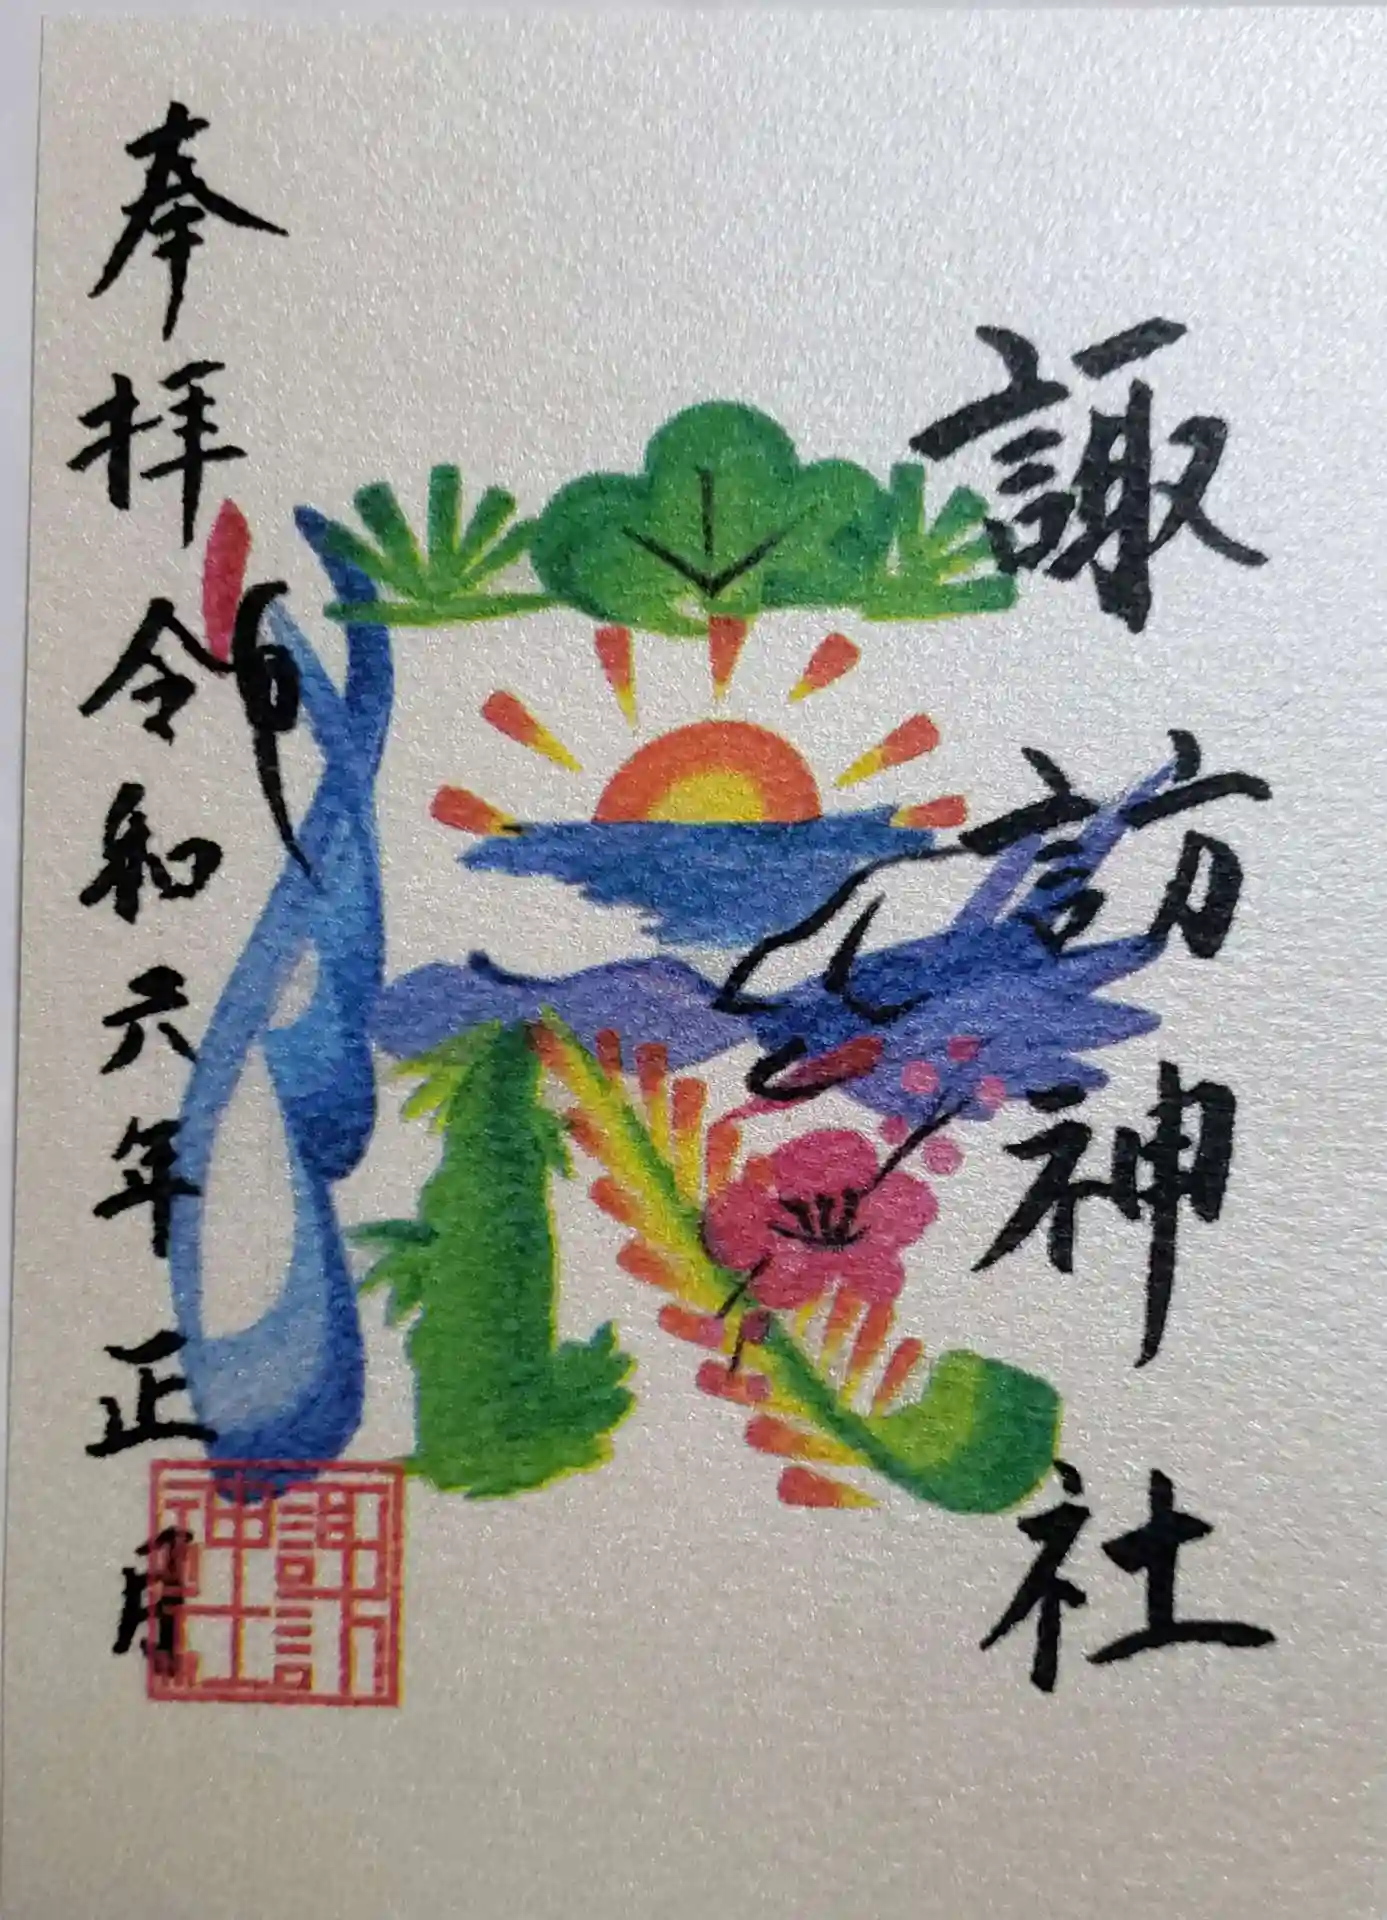 諏訪神社
奉拝令和六年正月
諏訪神社